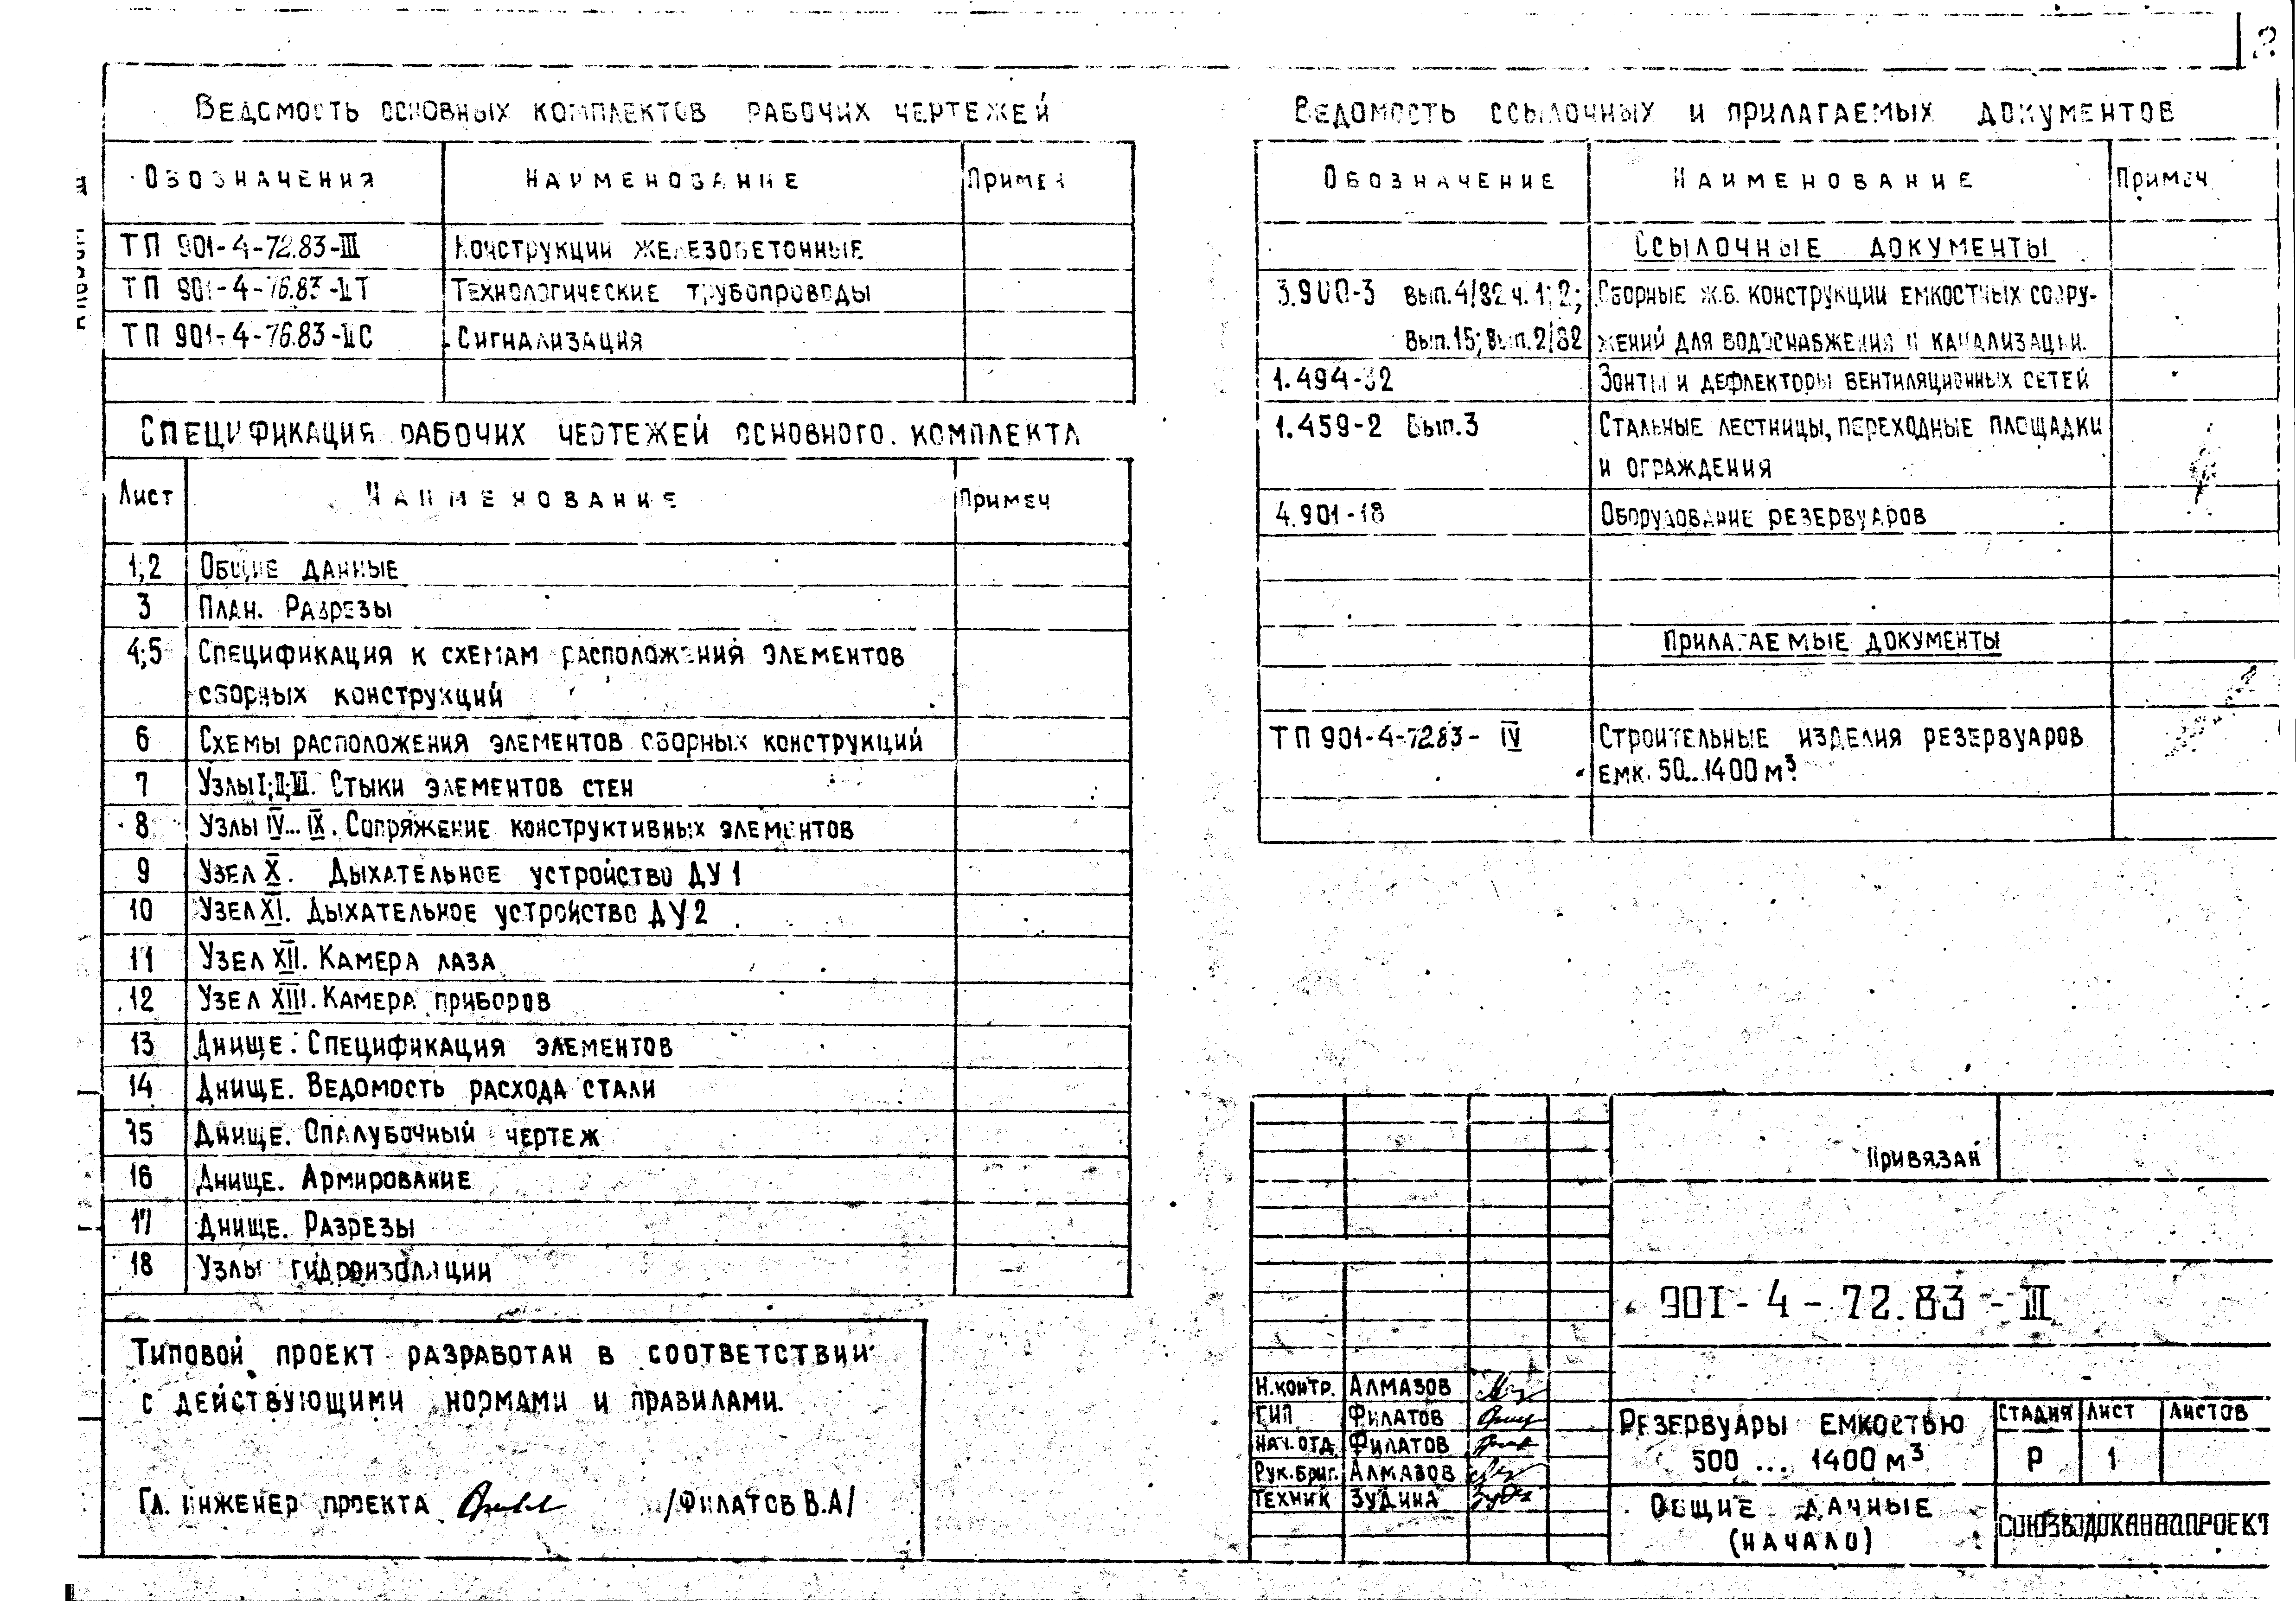 2
Ведомость основных комплектов рабочих чертежей
Обозначения Наименование Примеч
ТП 901-4-72.83-III Конструкции железобетонные
ТП 901-4-76.83-IIТ Технологические трубопроводы
ТП 901-4-76.83-IIС Сигнализация
Спецификация рабочих чертежей основного комплекта
Лист Наименование Примеч
1;2 Общие данные
3 План. Разрезы
4;5 Спецификация к схемам расположения элементов
сборных конструкций
6 Схемы расположения элементов сборных конструкций
7 Узлы I;II;III. Стыки элементов стен
8 Узлы IV...IX. Сопряжение конструктивных элементов
9 Узел X. Дыхательное устройство ДУ1
10 Узел XI. Дыхательное устройство ДУ2
11 Узел XII. Камера лаза
12 Узел XIII. Камера приборов
13 Днище. Спецификация элементов
14 Днище. Ведомость расхода стали
15 Днище. Опалубочный чертеж
16 Днище. Армирование
17 Днище. Разрезы
18 Узлы гидроизоляции
Типовой проект разработан в соответствии
с действующими нормами и правилами.
Гл. инженер проекта /Филатов В.А/
Ведомость ссылочных и прилагаемых документов
Обозначение Наименование Примеч
Ссылочные документы
3.900-3 вып.4/82 ч.1;2; Сборные ж.б. конструкции емкостных соору-
Вып.15; Вып.2/82 жений для водоснабжения и канализации.
1.494-32 Зонты и дефлекторы вентиляционных сетей
1.459-2 Вып.3 Стальные лестницы, переходные площадки
и ограждения
4.901-18 Оборудование резервуаров
Прилагаемые документы
ТП 901-4-72.83-IV Строительные изделия резервуаров
емк. 50...1400 м³
Привязан
901-4-72.83-III
Н.контр. Алмазов
ГИП Филатов
Нач.отд Филатов
Рук.бриг. Алмазов
Техник Зудина
Резервуары емкостью
500 ... 1400 м³
Стадия Лист Листов
Р 1
Общие данные
(начало)
СОЮЗВОДОКАНАЛПРОЕКТ